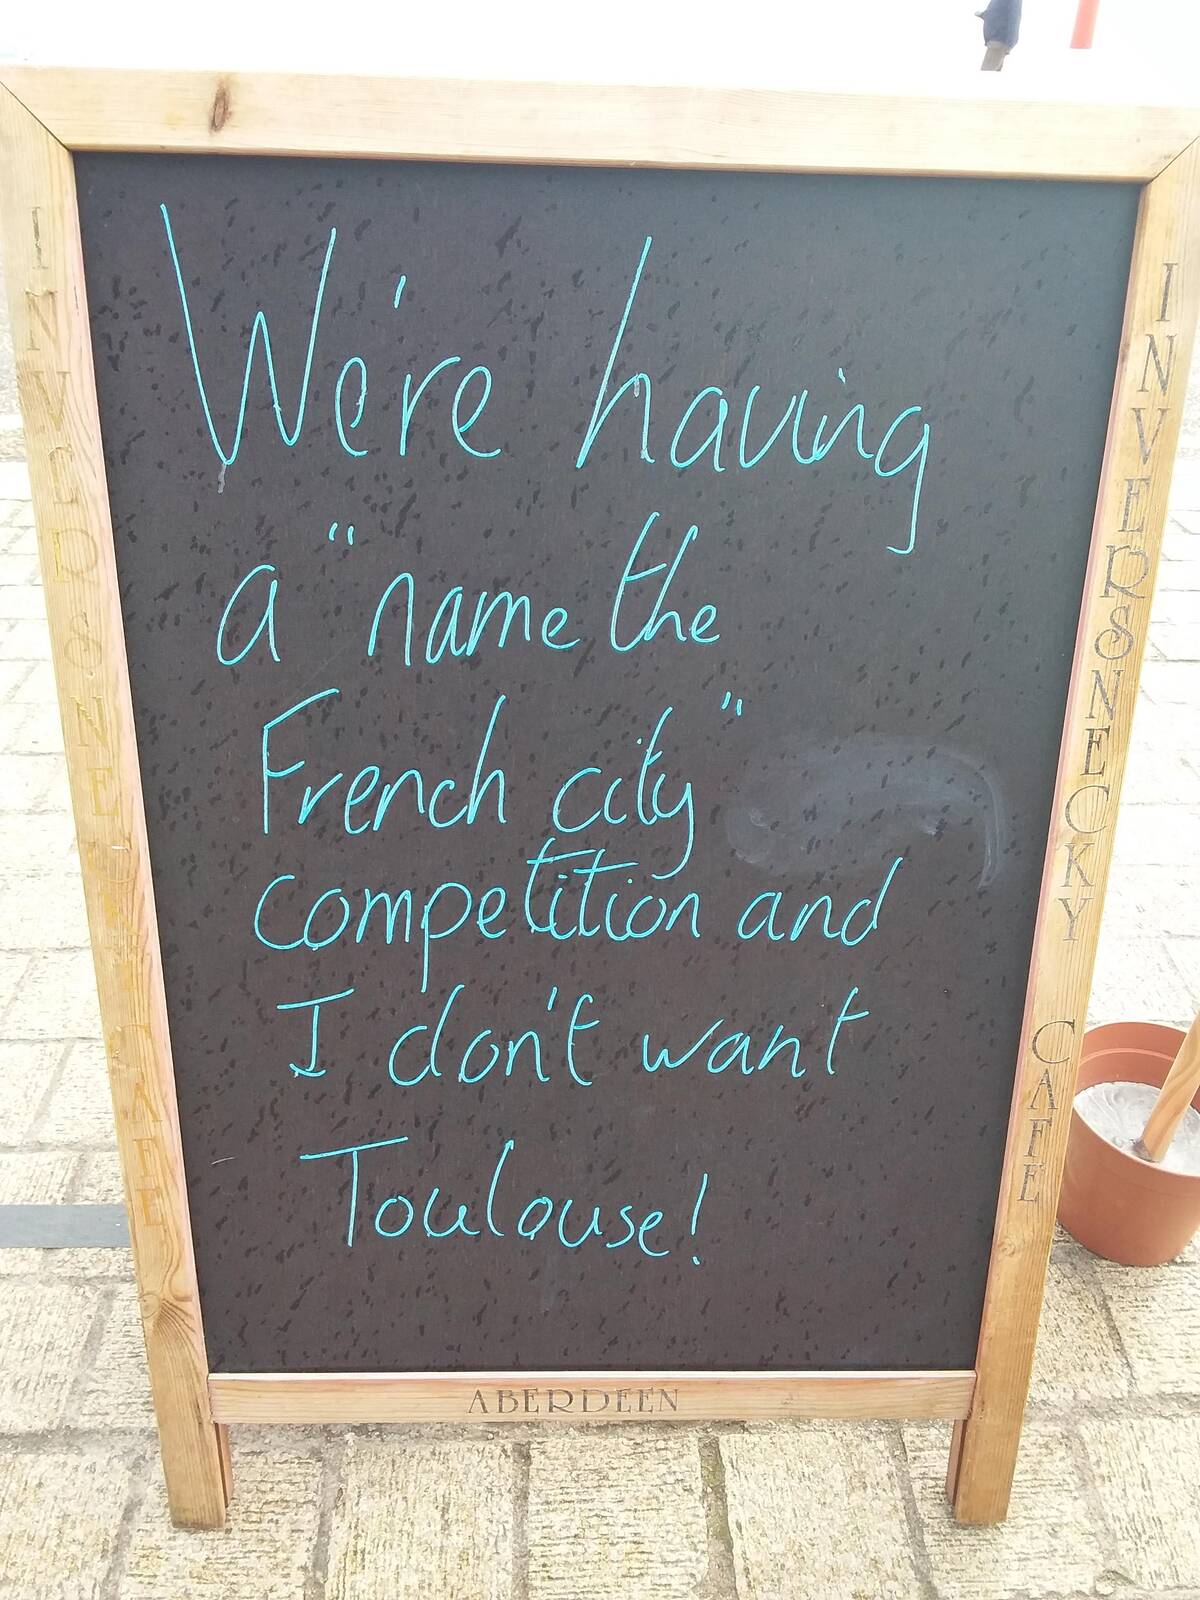 We're having
a "name the
French city"
competition and
I don't want
Toulouse!
INVERSNECKY CAFE
INVERSNECKY CAFE
ABERDEEN